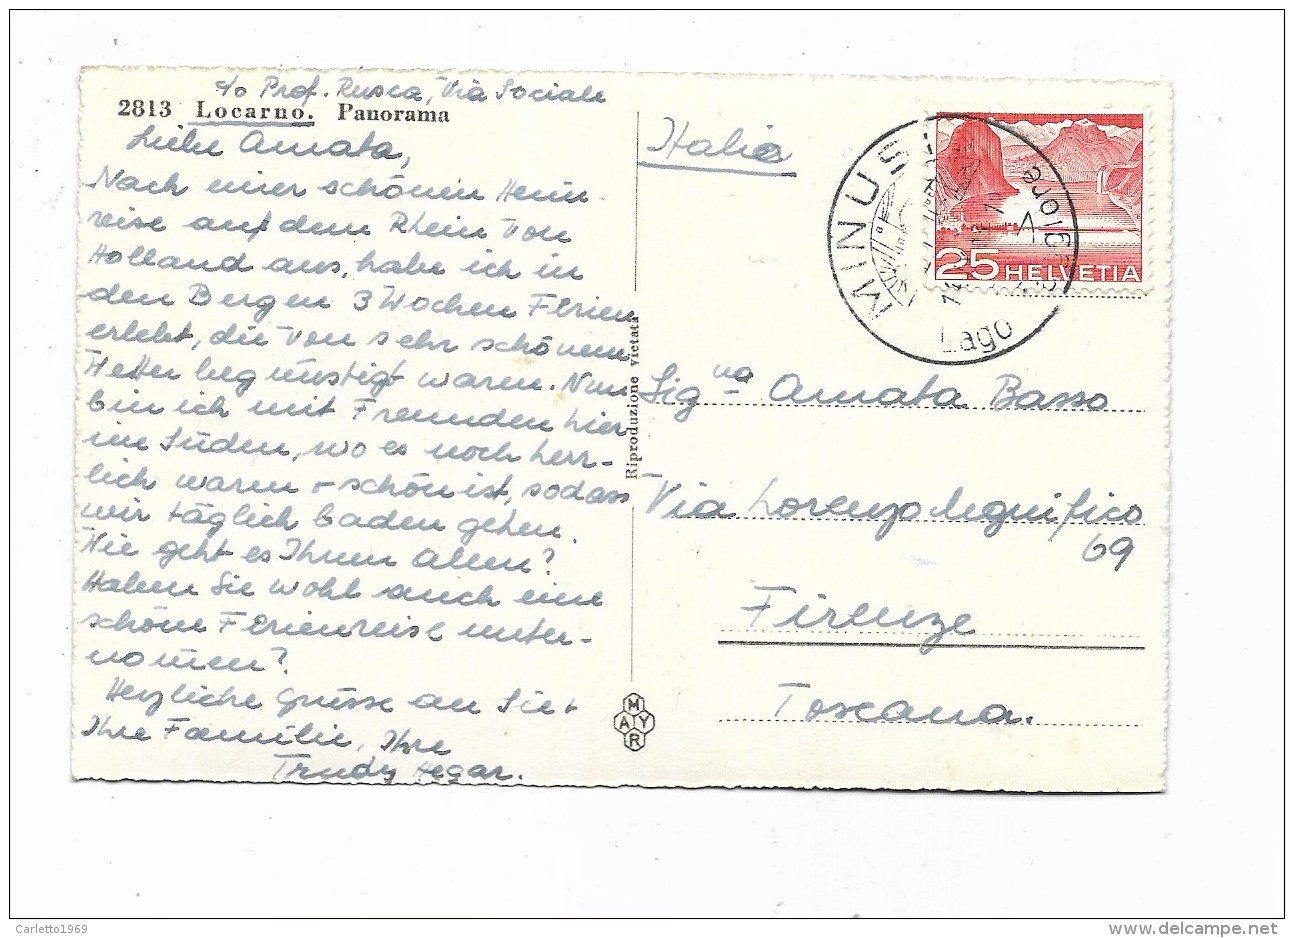 c/o Prof. Rusca, Via Sociale
2813 Locarno. Panorama
Liebe Amata,
Nach einer schönen Heim-
reise auf dem Rhein von
Holland aus, habe ich in
den Bergen 3 Wochen Ferien
erlebt, die von sehr schönem
Wetter begünstigt waren. Nun
bin ich mit Freunden hier
im Süden, wo es noch herr-
lich warm + schön ist, sodass
wir täglich baden gehen.
Wie geht es Ihnen allen?
Haben Sie wohl auch eine
schöne Ferienreise unter-
nommen?
Herzliche Grüsse an Sie +
Ihre Familie, Ihre
Trudy Hegar.
Riproduzione vietata
MAYR
Italia
MINUSI
Lago
giore
25 HELVETIA
Signa Amata Basso
Via Lorenzo Magnifico
69
Firenze
Toscana.
Carletto1969
www.delcampe.net